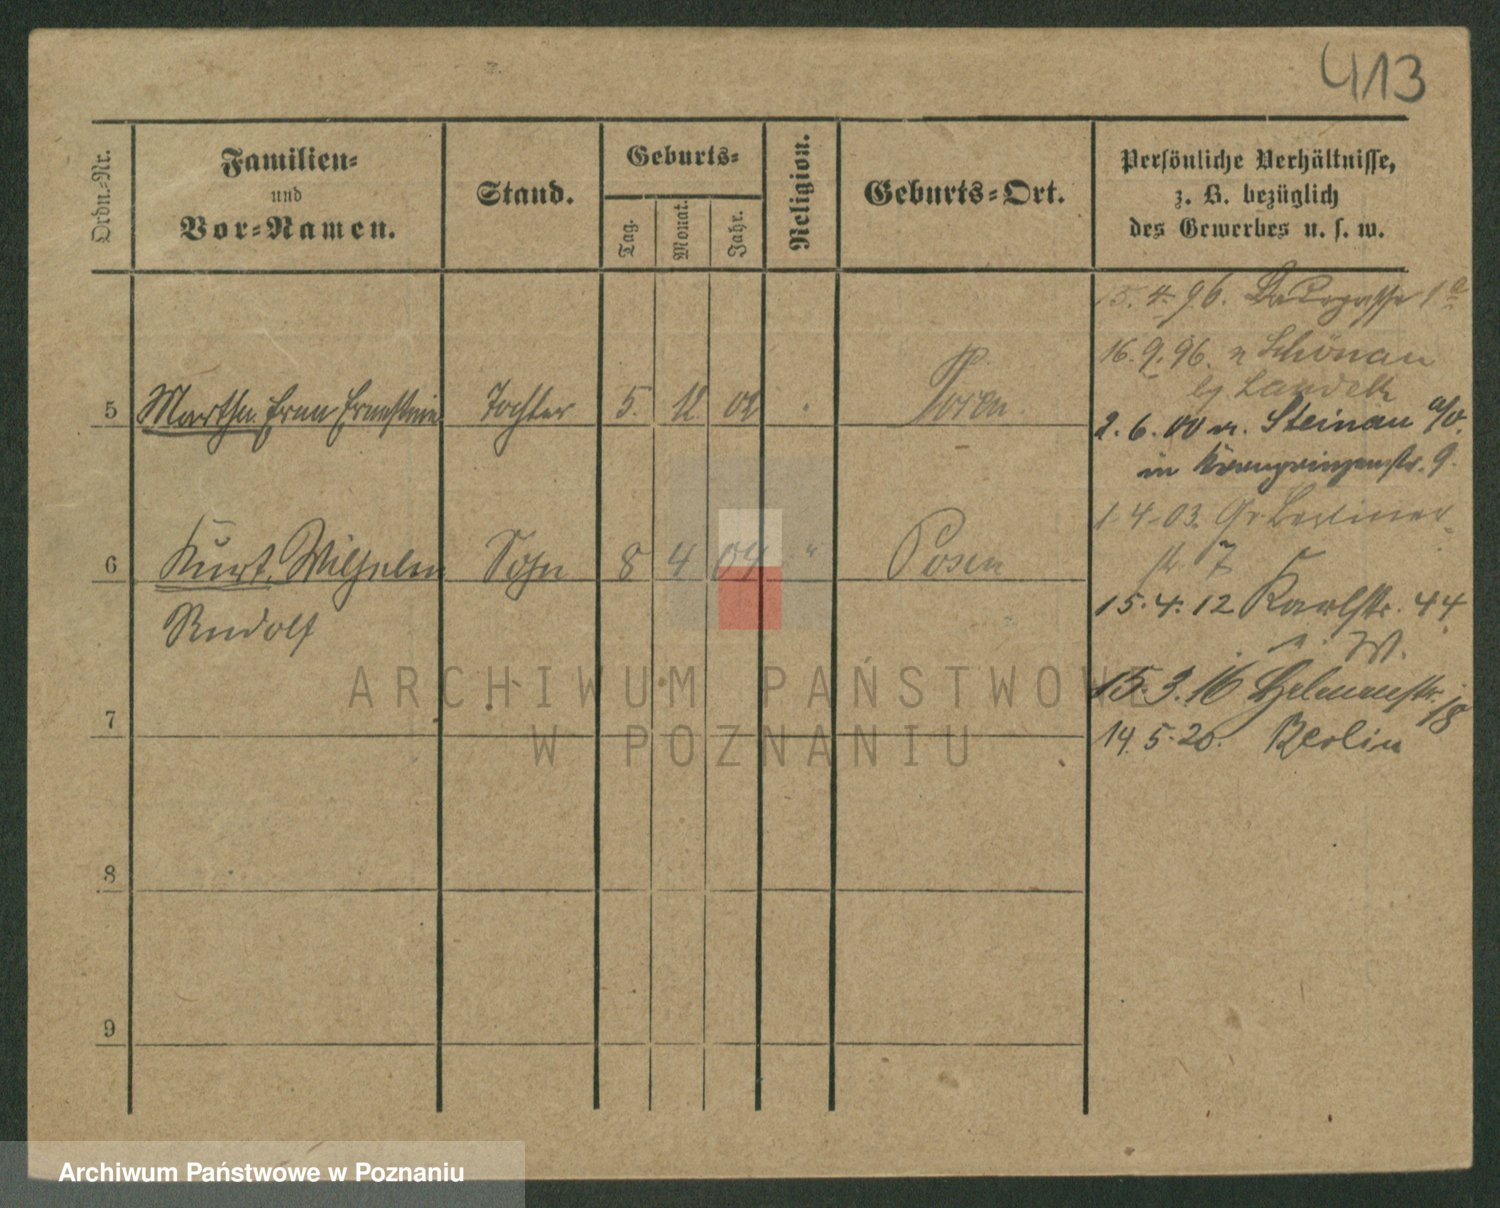 413
Ordn.-Nr.
Familien-
und
Vor-Namen.
Stand.
Geburts-
Tag.
Monat.
Jahr.
Religion.
Geburts-Ort.
Persönliche Verhältnisse,
z. B. bezüglich
des Gewerbes u. s. w.
15. 4. 96. 1a
16. 9. 96. n Schönau
bg Landeck
5 Martha Erna Ernestine Tochter 5. 12 02 Posen.
2. 6. 00 n. Steinau a/O.
in Kronprinzenstr. 9.
1 4 03. Gr Berliner-
str. 7
6 Kurt Wilhelm Sohn 8 4 04 " Posen
Rudolf
15. 4. 12 Karlstr. 44
15. 3. 16 18
7
14. 5. 20. Berlin
8
9
ARCHIWUM PAŃSTWOWE
W POZNANIU
Archiwum Państwowe w Poznaniu